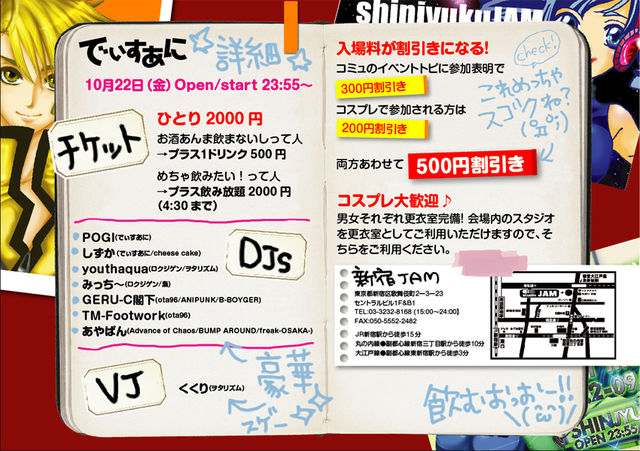 shinjyukuJAM
でぃすあに
詳細
10月22日(金) Open/start 23:55〜
チケット
ひとり 2000 円
お酒あんま飲まないしって人
→プラス1ドリンク 500 円
めちゃ飲みたい！って人
→プラス飲み放題 2000 円
(4:30 まで)
DJs
POGI(でぃすあに)
しずか(でぃすあに/cheese cake)
youthaqua(ロクジゲン/ヲタリズム)
みっち〜(ロクジゲン/桑)
GERU-C閣下(ota96/ANIPUNK/B-BOYGER)
TM-Footwork(ota96)
あやぱん(Advance of Chaos/BUMP AROUND/freak-OSAKA-)
豪華
スゲー
VJ
くくり(ヲタリズム)
入場料が割引きになる!
check!
コミュのイベントトピに参加表明で
300円割引き
コスプレで参加される方は
200円割引き
これめっちゃ
スゴクね?
両方あわせて 500円割引き
コスプレ大歓迎♪
男女それぞれ更衣室完備! 会場内のスタジオ
を更衣室としてご利用いただけますので、そ
ちらをご利用ください。
新宿JAM
東京都新宿区歌舞伎町2ー3ー23
セントラルビル1F&B1
TEL:03-3232-8168 (15:00〜24:00)
FAX:050-5552-2482
JR新宿駅から徒歩15分
丸の内線●副都心線新宿三丁目駅から徒歩10分
大江戸線●副都心線東新宿駅から徒歩3分
JAM
飲むおっおっー!!
\(^ω^)/
2-09
SHINJYU
OPEN 23:55